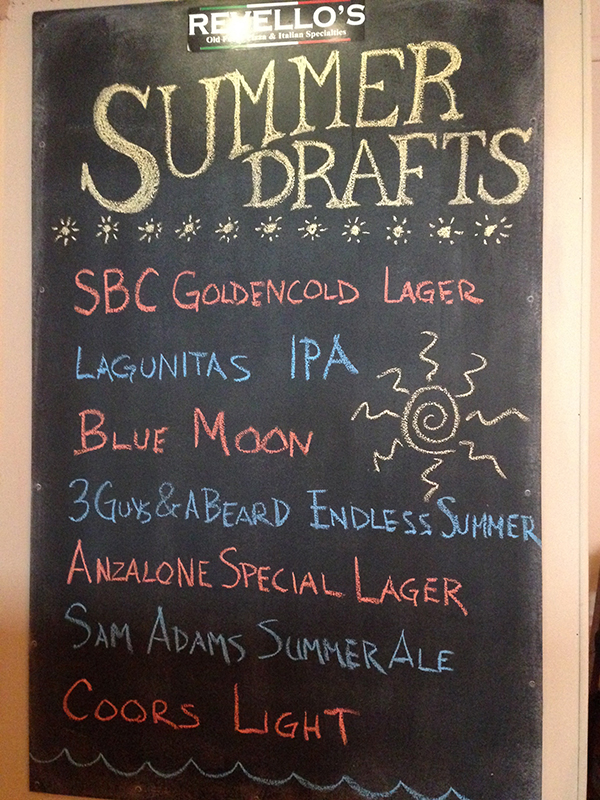 REVELLO'S
Old Pizza & Italian Specialties
SUMMER
DRAFTS
SBC GOLDENCOLD LAGER
LAGUNITAS IPA
BLUE MOON
3 GUYS & A BEARD ENDLESS SUMMER
ANZALONE SPECIAL LAGER
SAM ADAMS SUMMER ALE
COORS LIGHT